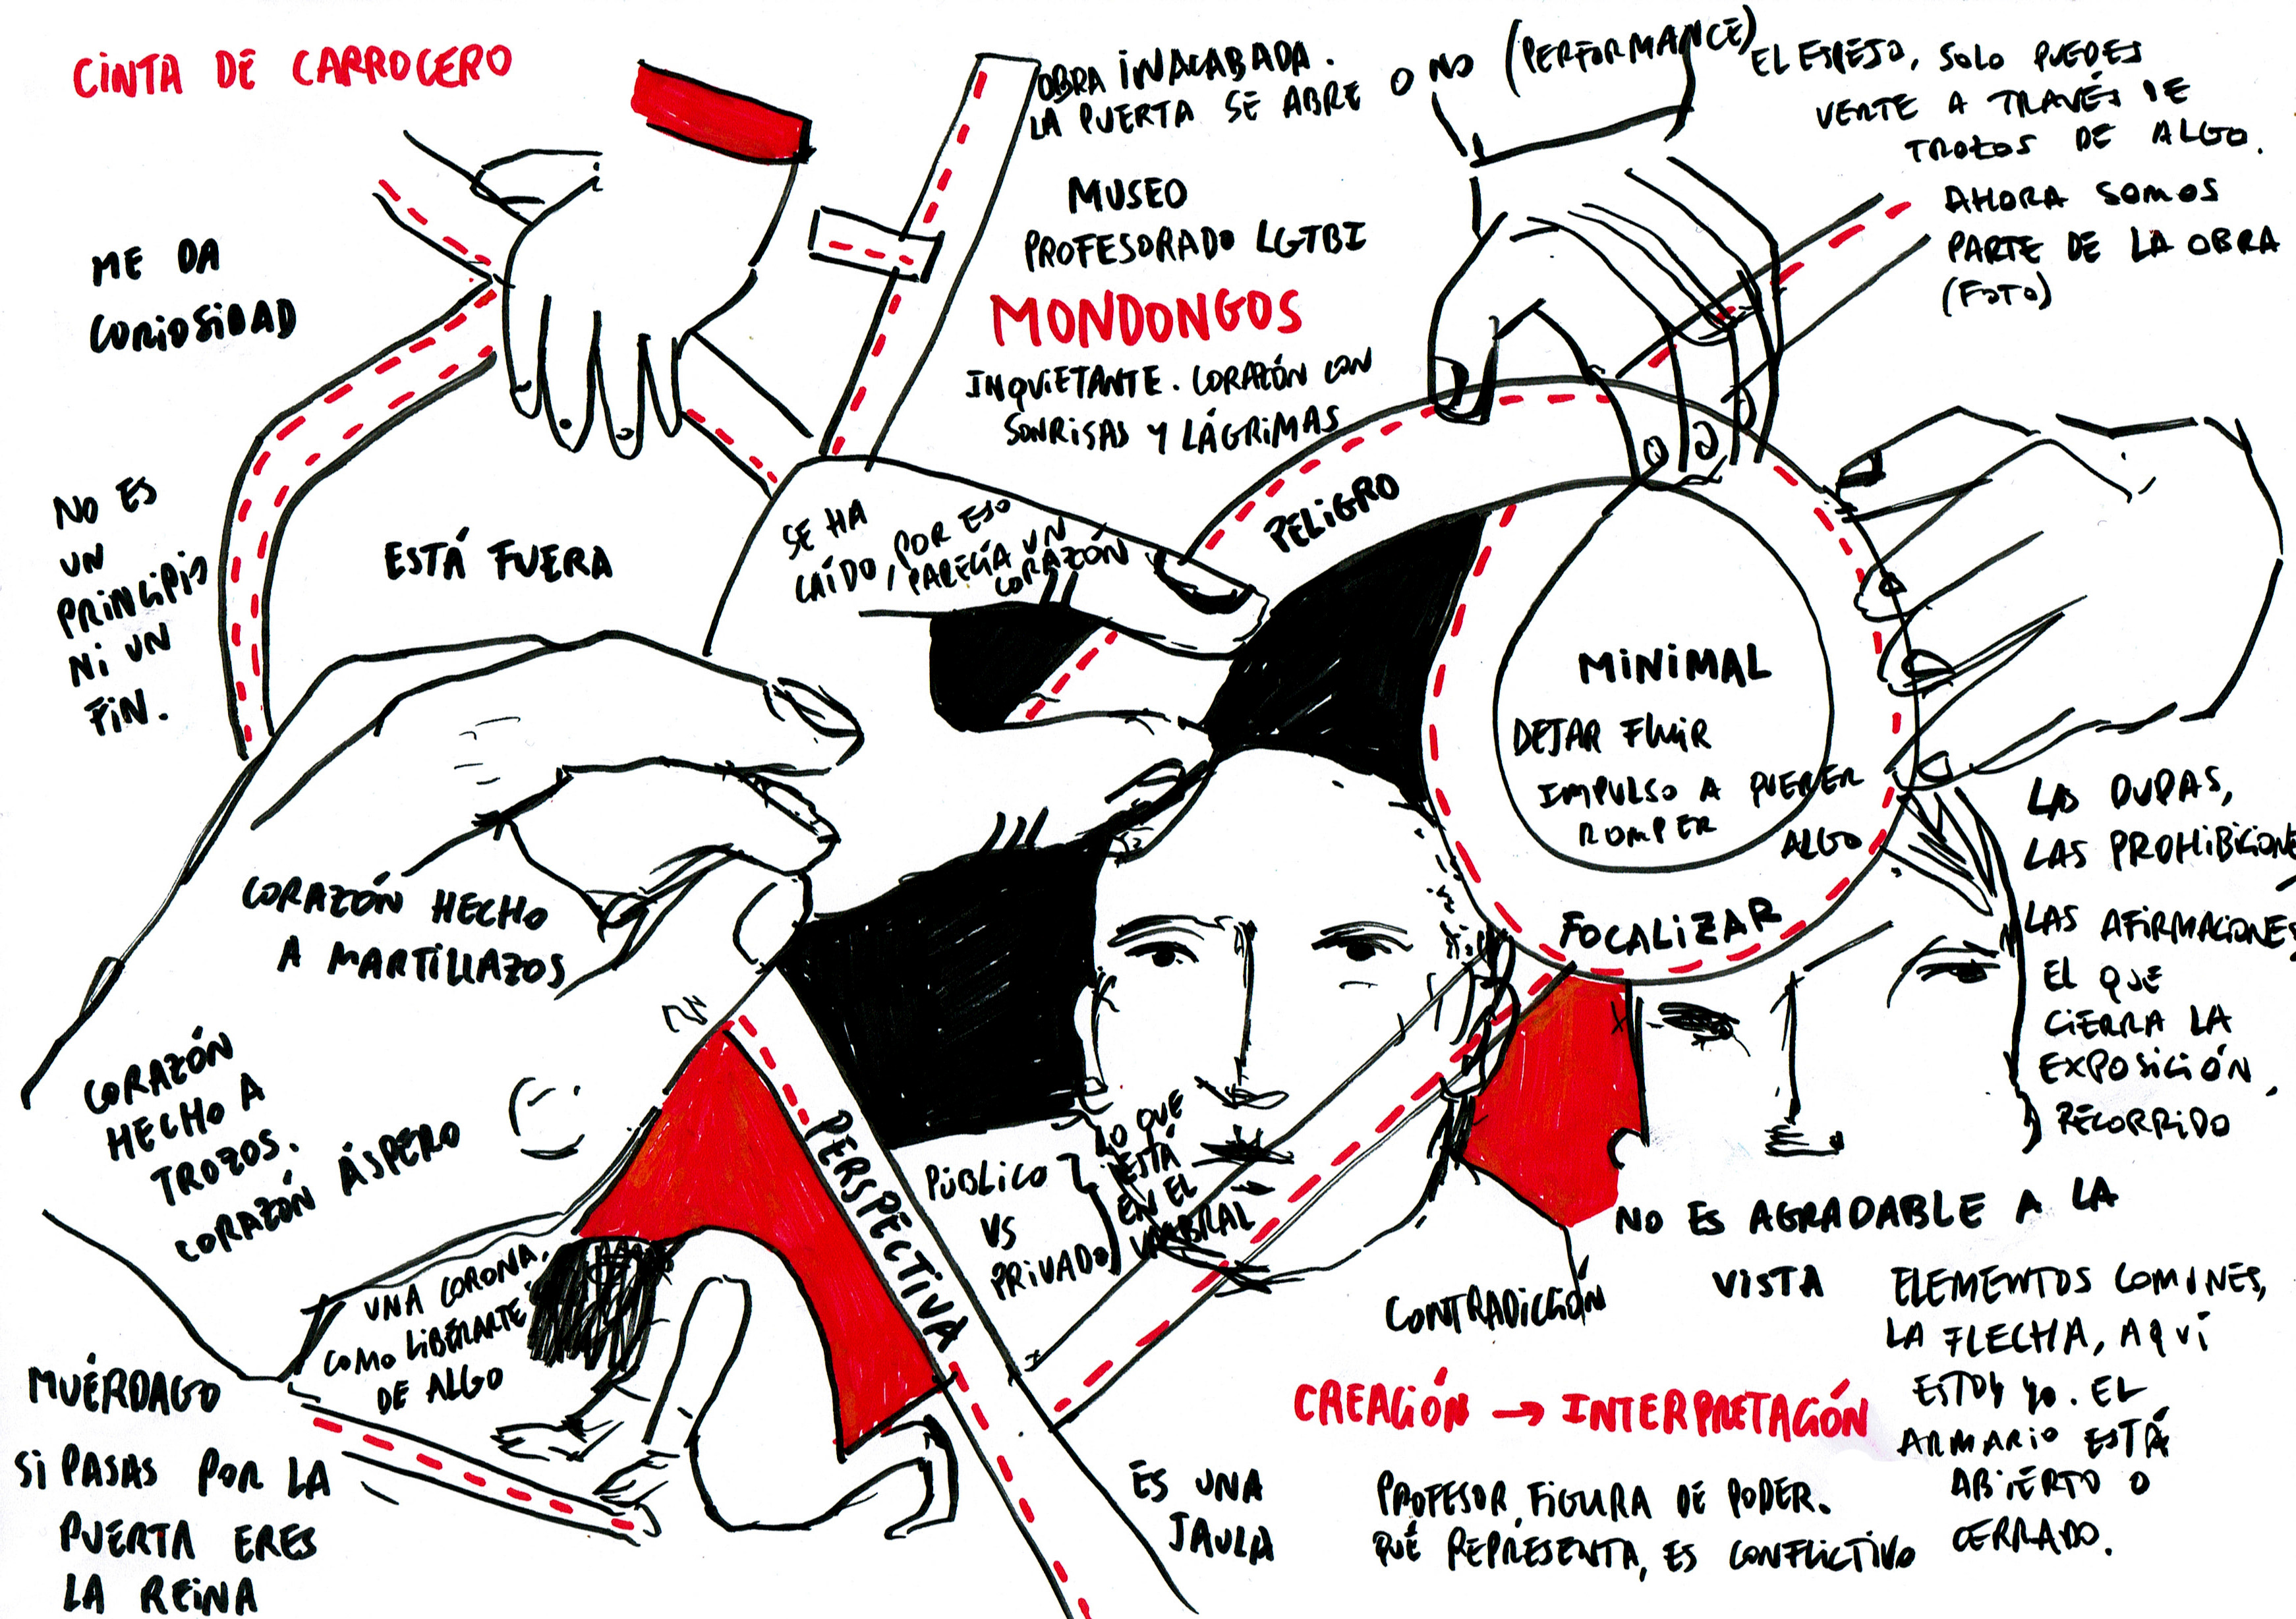 CINTA DE CARROCERO
OBRA INACABADA.
LA PUERTA SE ABRE O NO (PERFORMANCE)
EL ESPEJO, SOLO PUEDES
VERTE A TRAVÉS DE
TROZOS DE ALGO.
AHORA SOMOS
PARTE DE LA OBRA
(FOTO)
MUSEO
PROFESORADO LGTBI
MONDONGOS
INQUIETANTE. CORAZÓN CON
SONRISAS Y LÁGRIMAS
ME DA
CURIOSIDAD
NO ES
UN
PRINCIPIO
NI UN
FIN.
ESTÁ FUERA
SE HA
CAÍDO, POR ESO
PARECÍA UN
CORAZÓN
PELIGRO
MINIMAL
DEJAR FLUIR
IMPULSO A QUERER
ROMPER
ALGO
FOCALIZAR
LAS DUDAS,
LAS PROHIBICIONES
LAS AFIRMACIONES
EL QUE
CIERRA LA
EXPOSICIÓN.
RECORRIDO
CORAZÓN HECHO
A MARTILLAZOS
CORAZÓN
HECHO A
TROZOS.
CORAZÓN ÁSPERO
PERSPECTIVA
PÚBLICO
VS
PRIVADO
LO QUE
ESTÁ
EN EL
UMBRAL
UNA CORONA,
COMO LIBERARTE
DE ALGO
MUÉRDAGO
SI PASAS POR LA
PUERTA ERES
LA REINA
NO ES AGRADABLE A LA
VISTA
CONTRADICCIÓN
CREACIÓN → INTERPRETACIÓN
ES UNA
JAULA
PROFESOR, FIGURA DE PODER.
QUÉ REPRESENTA, ES CONFLICTIVO
ELEMENTOS COMUNES,
LA FLECHA, AQUÍ
ESTOY YO. EL
ARMARIO ESTÁ
ABIERTO O
CERRADO.